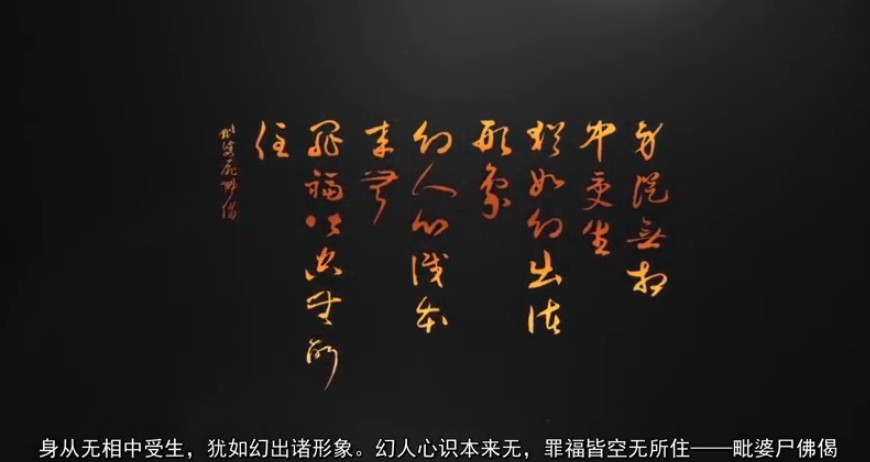 身從無相
中受生
猶如幻出諸
形象
幻人心識本
来無
罪福皆空無所
住
毗婆尸佛偈
身从无相中受生，犹如幻出诸形象。幻人心识本来无，罪福皆空无所住——毗婆尸佛偈